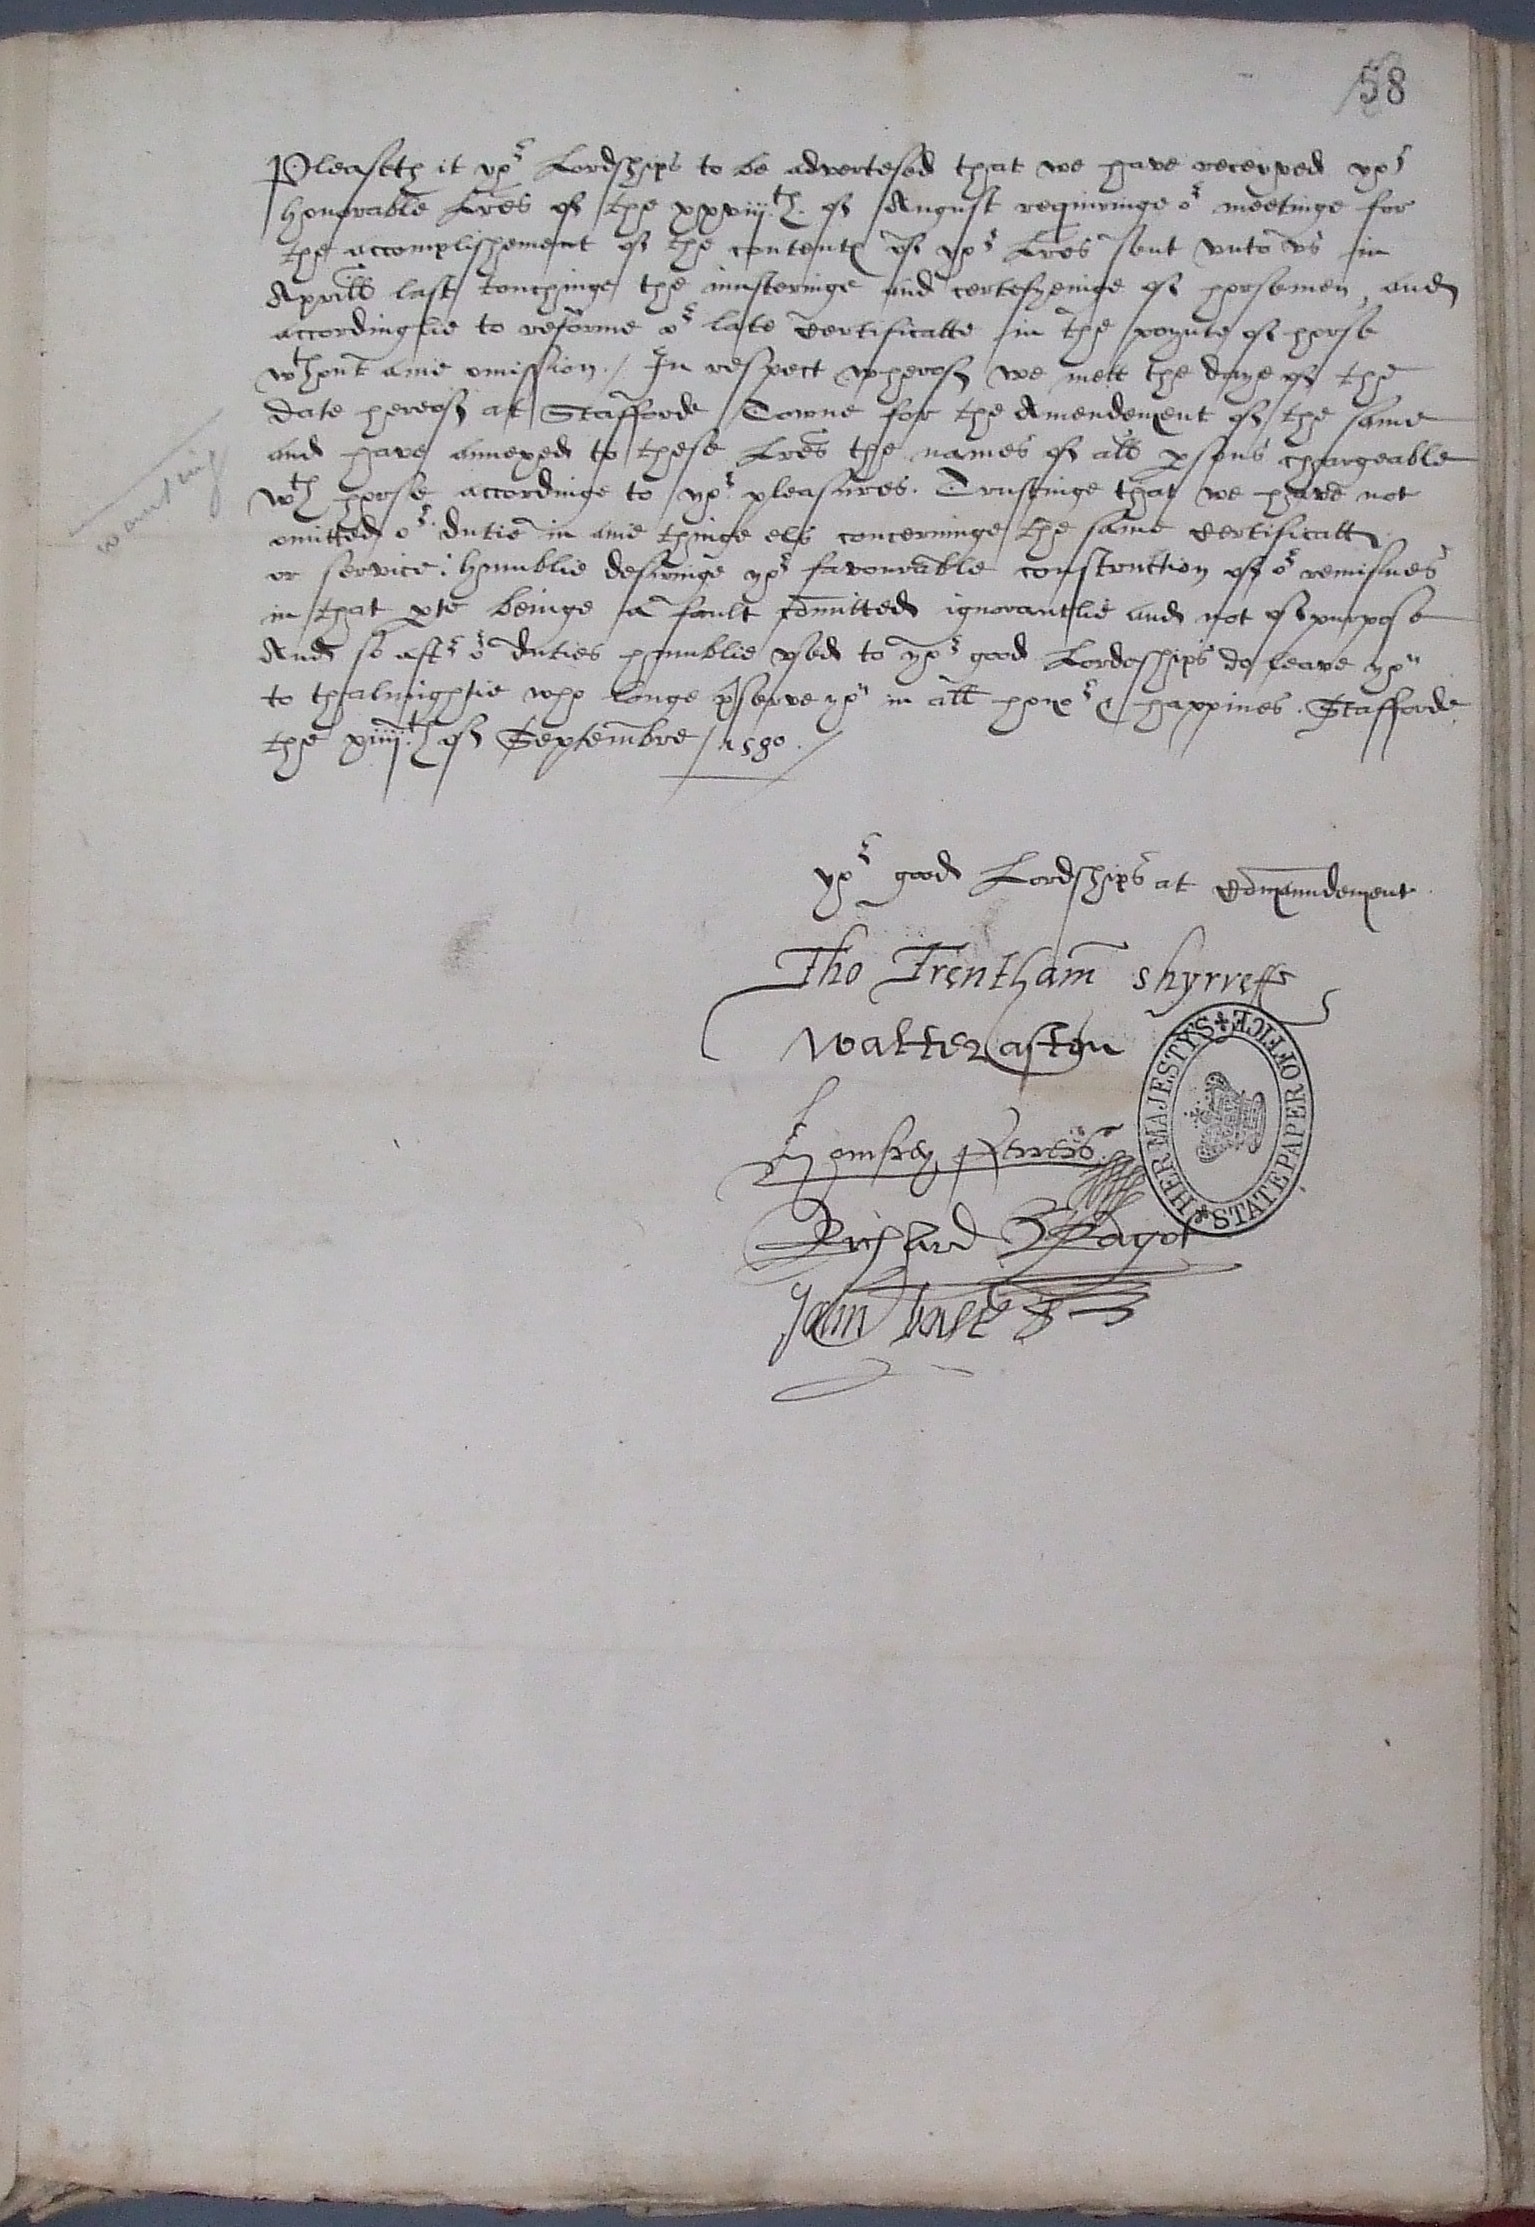 58
Pleaseth it yor Lordships to be advertesed that we have receyved yor
honorable Lres of the xxviiith. of August requiringe or meetinge for
the accomplishement of the contents of yor Lres sent unto us in
Aprill last touchinge the musteringe and certefyeinge of horsemen, and
accordinglie to reforme or late Certificatte in the poynte of horse
wthout anie omission./ In respect wherof we mett the daye of the
date hereof at Stafforde Towne for the Amendement of the same
and have annexed to these Lres the names of all psons chargeable
wth horse accordinge to yor pleasures. Trustinge that we have not
omitted or dutie in anie thinge els concerninge the same Certificatt
or service: Humblie desiringe yor favourable construction of or remisnes
in that pte beinge a fault comitted ignorantlie and not of purpose
And so aftr or duties humblie used to yor good Lordeships do leave you
to thalmightie who longe pserve you in all honor & happines. Stafforde
the xiiiith of Septembre / 1580./
wanting
yor good Lordships at Comaundement.
Tho Trentham shyrreff
Walter Aston
Homfrey Ferrers
Richard Bagot
HER MAJESTY'S STATE PAPER OFFICE